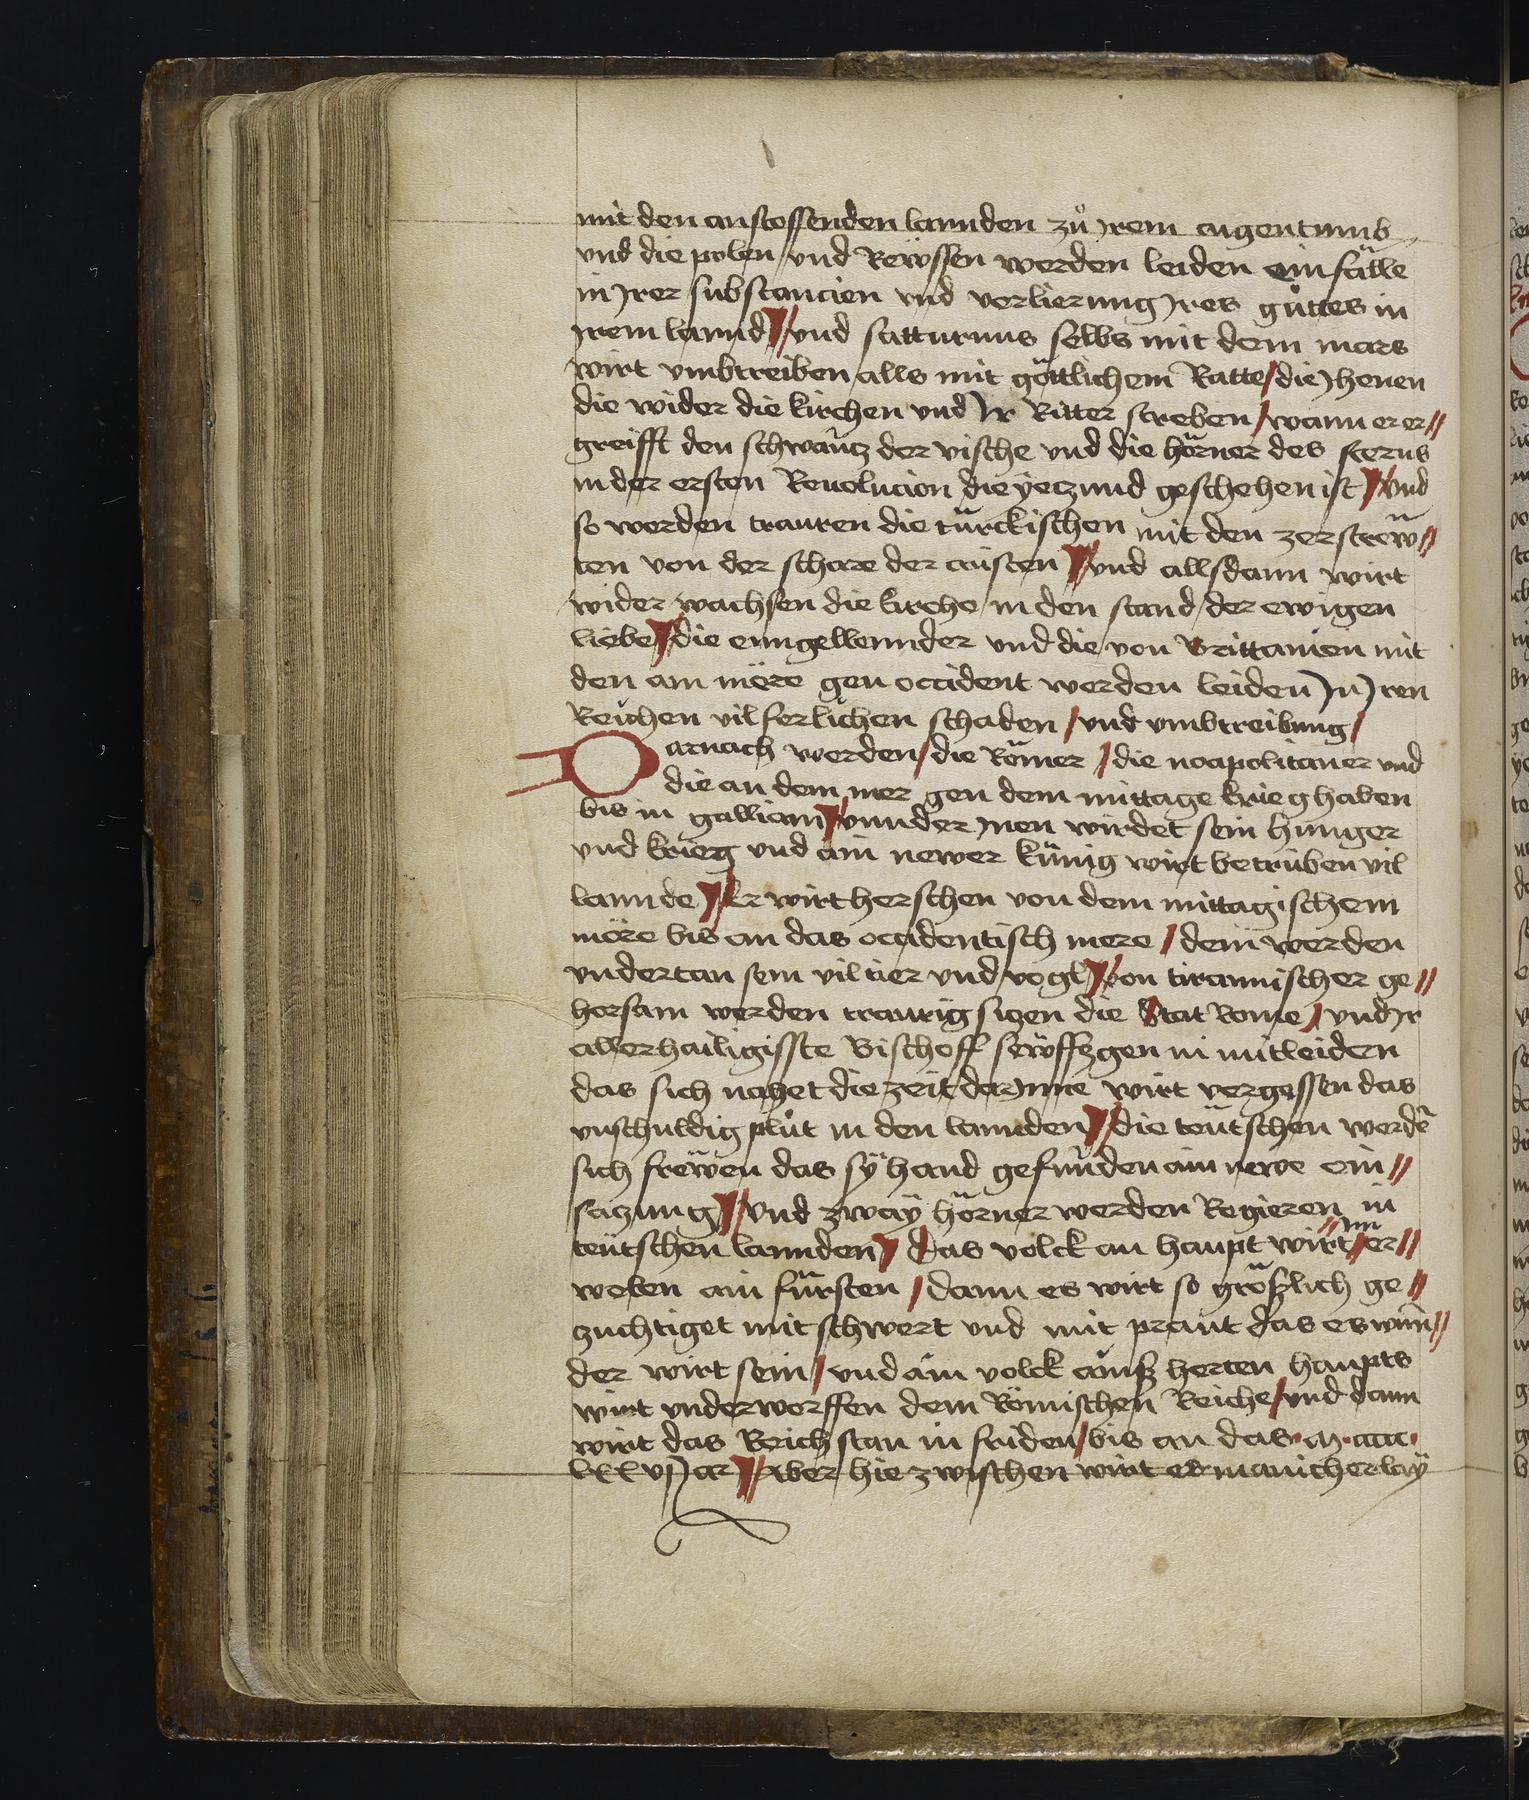 mit den anstossenden lannden zů jrem aigentumb
vnd die polen vnd Rewssen werden leiden einfälle
in jrer substancien vnd verlierung jres gůttes in
jrem lannd // vnd satturnus selbs mit dem mars
wirt vmbtreiben alle mit göttlichem Ratte / die jhenen
die wider die kirchen vnd jr Ritter streben / wann er er//
greifft den schwantz der vische vnd die hörner des sterns
in der ersten Reuolucion die yetzund geschehen ist // vnd
so werden trauren die türckischen mit den zerstrew//
ten von der schare der cristen // vnd allsdann wirt
wider wachsen die kirche in den stand der ewigen
liebe // die enngellennder vnd die von Brittanien mit
den am möre gen occident werden leiden jn jren
Reichen vil ferlichen schaden / vnd vmbtreibung /
Darnach werden / die Römer / die neapolitaner vnd
die an dem mer gen dem mittage krieg haben
bis in galliam // vnnder jnen wirdet sein hunger
vnd krieg vnd ain newer künig wirt betrüben vil
lannde // Er wirt herschen von dem mittagischem
möre bis an das occidentisch mere / dem werden
vndertan sein vil tier vnd vogl // von tirannischer ge//
horsam werden traurig sizen die Stat Rome / vnd jr
allerhailigisste Bischoff sewffzgen in mitleiden
das sich nahet die zeit dar jnne wirt vergessen das
vnschuldig plůt in den lannden // die teutschen werdē
sich frewen das sy hand gefunden ain newe ein//
saczung // vnd zway hörner werden Regieren in
teutschen lannden // das volck an haupt wirt jm er//
welen ain fürsten / dann es wirt so größlich ge//
zuchtiget mit schwert vnd mit prant das es wun//
der wirt sein / vnd ain volck ains herten haupts
wirt vnderworffen dem Römischen Reiche / vnd dann
wirt das Reich stan in friden / bis an das · m · cccc ·
lxxvj jar // Aber hie zwischen wirt er manicherlay